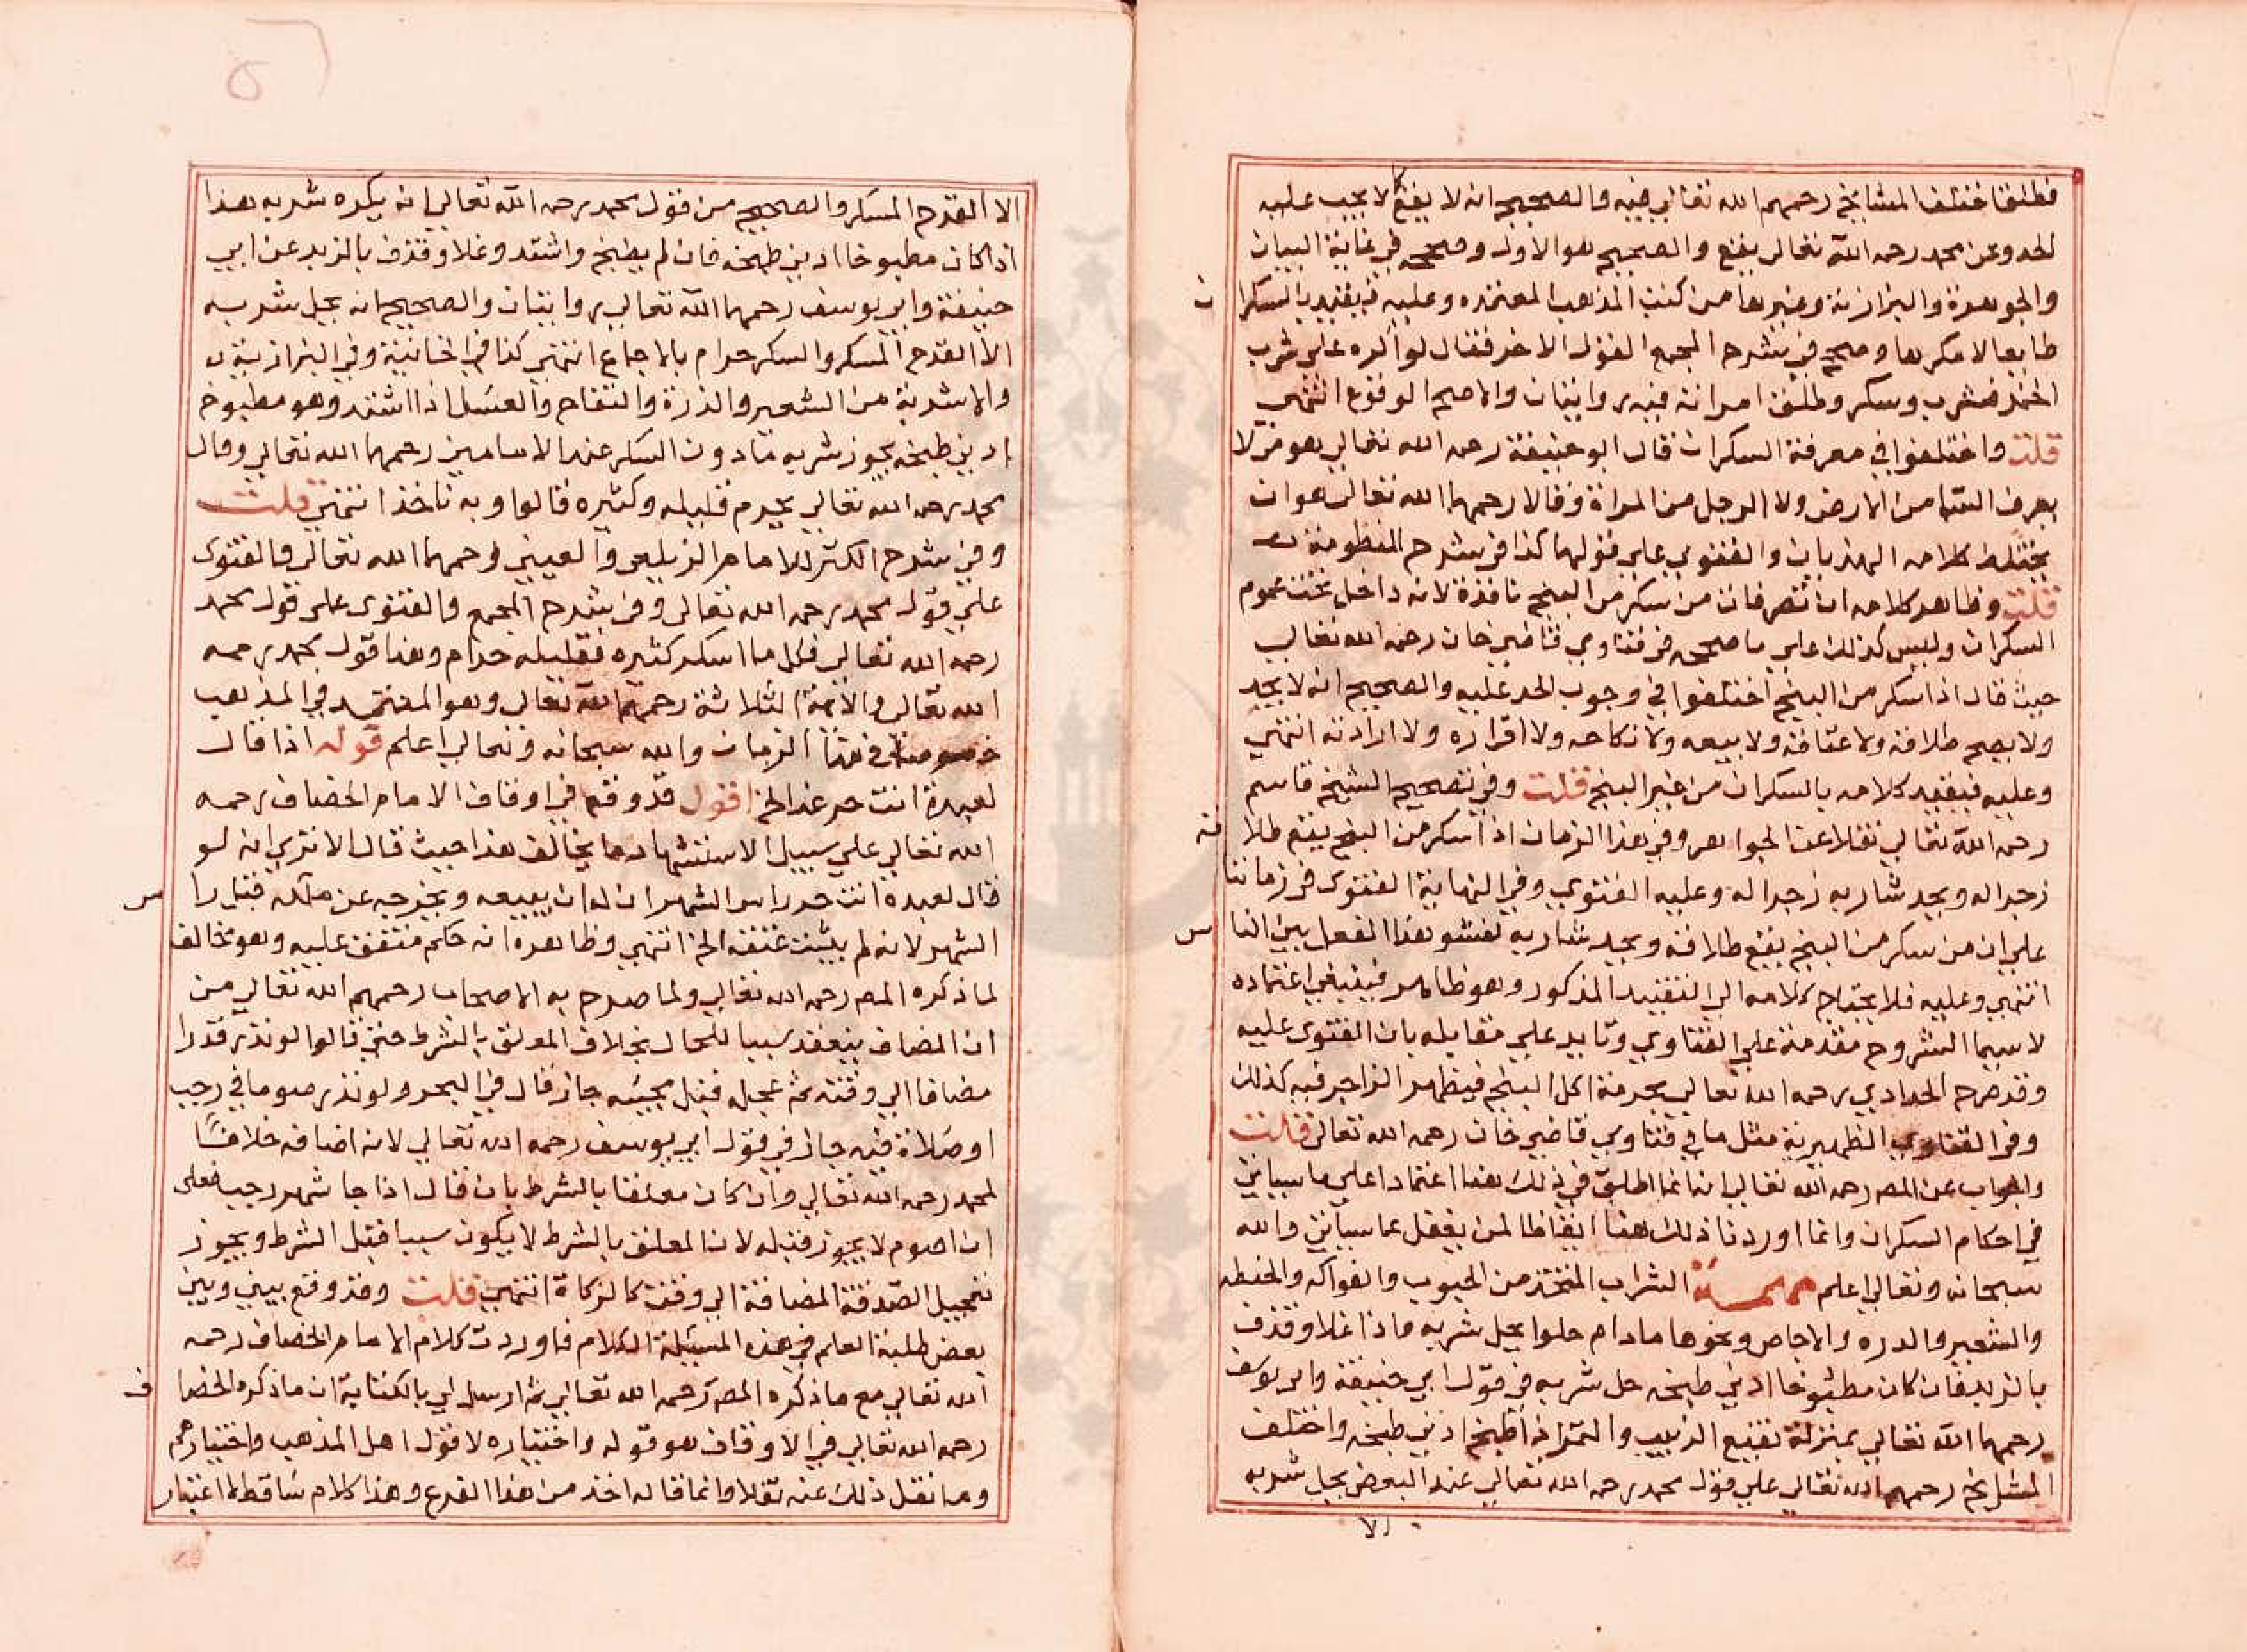 فطلق اختلف المشايخ رحمهم الله تعالى فيه والصحيح انه لا يقع كما لا يجب عليه
الحد وعن محمد رحمه الله تعالى يقع والصحيح هو الاول وصححه في غاية البيان
والجوهرة والبزازية وغيرها من كتب المذهب المعتمده وعليه فيقيد بالسكرا ن
طايعا لا مكرها وصحح في شرح المجمع القول الاخر فقال لو اكره على شرب
الخمر فشرب وسكر وطلق امراته فيه روايتان والاصح الوقوع انتهى
قلت واختلفوا في معرفة السكران قال ابو حنيفة رحمه الله تعالى هو من لا
يعرف السما من الارض ولا الرجل من المراة وقالا رحمهما الله تعالى هو ان
يختلط كلامه الهذيان والفتوى على قولهما كذا في شرح المنظومة
قلت وظاهر كلامه ان تصرفات من سكر من البنج نافذة لانه داخل تحت عموم
السكران وليس كذلك على ما صححه في فتاوي قاضي خان رحمه الله تعالى
حيث قال اذا سكر من البنج اختلفوا في وجوب الحد عليه والصحيح انه لا يحد
ولا يصح طلاقه ولا عتاقه ولا بيعه ولا نكاحه ولا اقراره ولا ارادته انتهى
وعليه فيقيد كلامه بالسكران من غير البنج قلت وفي تصحيح الشيخ قاسم
رحمه الله تعالى نقلا عن الجواهر وفي هذا الزمان اذا سكر من البنج يقع طلا قه
زجرا له ويحد شاربه زجرا له وعليه الفتوى وفي النهاية الفتوى في زماننا
على ان من سكر من البنج يقع طلاقه ويحد شاربه لفشو هذا الفعل بين النا س
انتهى وعليه فلا يحتاج كلامه الى التقييد المذكور وهو ظاهر فينبغي اعتماده
لاسيما الشروح مقدمة على الفتاوي وتايد على مقابله بان الفتوى عليه
وقد صرح الحدادي رحمه الله تعالى بحرمة اكل البنج فيظهر الزاجر فيه كذلك
وفي الفتاوى الظهيرية مثل ما في فتاوي قاضي خان رحمه الله تعالى قلت
والجواب عن المص رحمه الله تعالى انه انما اطلق في ذلك هنا اعتمادا على ما سياتي
في احكام السكران وانما اوردنا ذلك هنا ايقاظا لمن يغفل عما سياتي والله
سبحانه وتعالى اعلم مهمة الشراب المتخذ من الحبوب والفواكه والحنطه
والشعير والدره والاجاص ونحوها مادام حلوا يحل شربه فاذا غلا وقذف
بالزبد فان كان مطبوخا ادنى طبخه حل شربه في قول ابي حنيفة وابي يوسف
رحمهما الله تعالى بمنزلة نقيع الزبيب والتمر اذا طبخ ادنى طبخه واختلف
المشايخ رحمهم الله تعالى على قول محمد رحمه الله تعالى عند البعض يحل شربه
الا
الا القدح المسكر والصحيح من قول محمد رحمه الله تعالى انه يكره شربه هذا
اذا كان مطبوخا ادنى طبخه فان لم يطبخ واشتد وغلا وقذف بالزبد عن ابي
حنيفة وابي يوسف رحمهما الله تعالى روايتان والصحيح انه يحل شربه
الا القدح المسكر والسكر حرام بالاجماع انتهى كذا في الخانية وفي البزازية
والاشربة من الشعير والذرة والتفاح والعسل اذا اشتد وهو مطبوخ
ادنى طبخه يجوز شربه مادون السكر عند الامامين رحمهما الله تعالى وقال
محمد رحمه الله تعالى يحرم قليله وكثيره قالوا وبه ناخذ انتهى قلت
وفي شرح الكنز للامام الزيلعي والعيني رحمهما الله تعالى والفتوى
على قول محمد رحمه الله تعالى وفي شرح المجمع والفتوى على قول محمد
رحمه الله تعالى فكل ما اسكر كثيره فقليله حرام وهذا قول محمد رحمه
الله تعالى والائمة الثلاثة رحمهم الله تعالى وهو المعتمد في المذهب
خصوصا في هذا الزمان والله سبحانه وتعالى اعلم قوله اذا قال
لعبده انت حر غدا الخ اقول قد وقع في اوقاف الامام الخصاف رحمه
الله تعالى على سبيل الاستشهاد ما يخالف هذا حيث قال الا ترى انه لو
قال لعبده انت حر راس الشهر ان له ان يبيعه ويخرجه عن ملكه قبل را س
الشهر لانه لم يثبت عتقه الخ انتهى وظاهره انه حكم متفق عليه وهو مخالف
لما ذكره المص رحمه الله تعالى ولما صرح به الاصحاب رحمهم الله تعالى من
ان المضاف ينعقد سببا للحال بخلاف المعلق بالشرط حتى قالوا لو نذر قدرا
مضافا الى وقته ثم عجله قبل مجيئه جاز قال في البحر ولو نذر صوما في رجب
او صلاة فيه جاز في قول ابي يوسف رحمه الله تعالى لانه اضافه خلافا
لمحمد رحمه الله تعالى وان كان معلقا بالشرط بان قال اذا جا شهر رجب فعلى
ان اصوم لا يجوز قبله لان المعلق بالشرط لا يكون سببا قبل الشرط ويجوز
تعجيل الصدقة المضافة الى وقت كالزكاة انتهى قلت وقد وقع بيني وبين
بعض طلبة العلم في هذه المسئلة الكلام فاوردت كلام الامام الخصاف رحمه
الله تعالى مع ما ذكره المص رحمه الله تعالى ثم ارسل لي بالكتابة ان ما ذكره الخصا ف
رحمه الله تعالى في الاوقاف هو قوله واختياره لا قول اهل المذهب واختيارهم
وما نقل ذلك عنه نقلا وانما قاله اخذ من هذا الفرع وهذا كلام ساقط الاعتبار